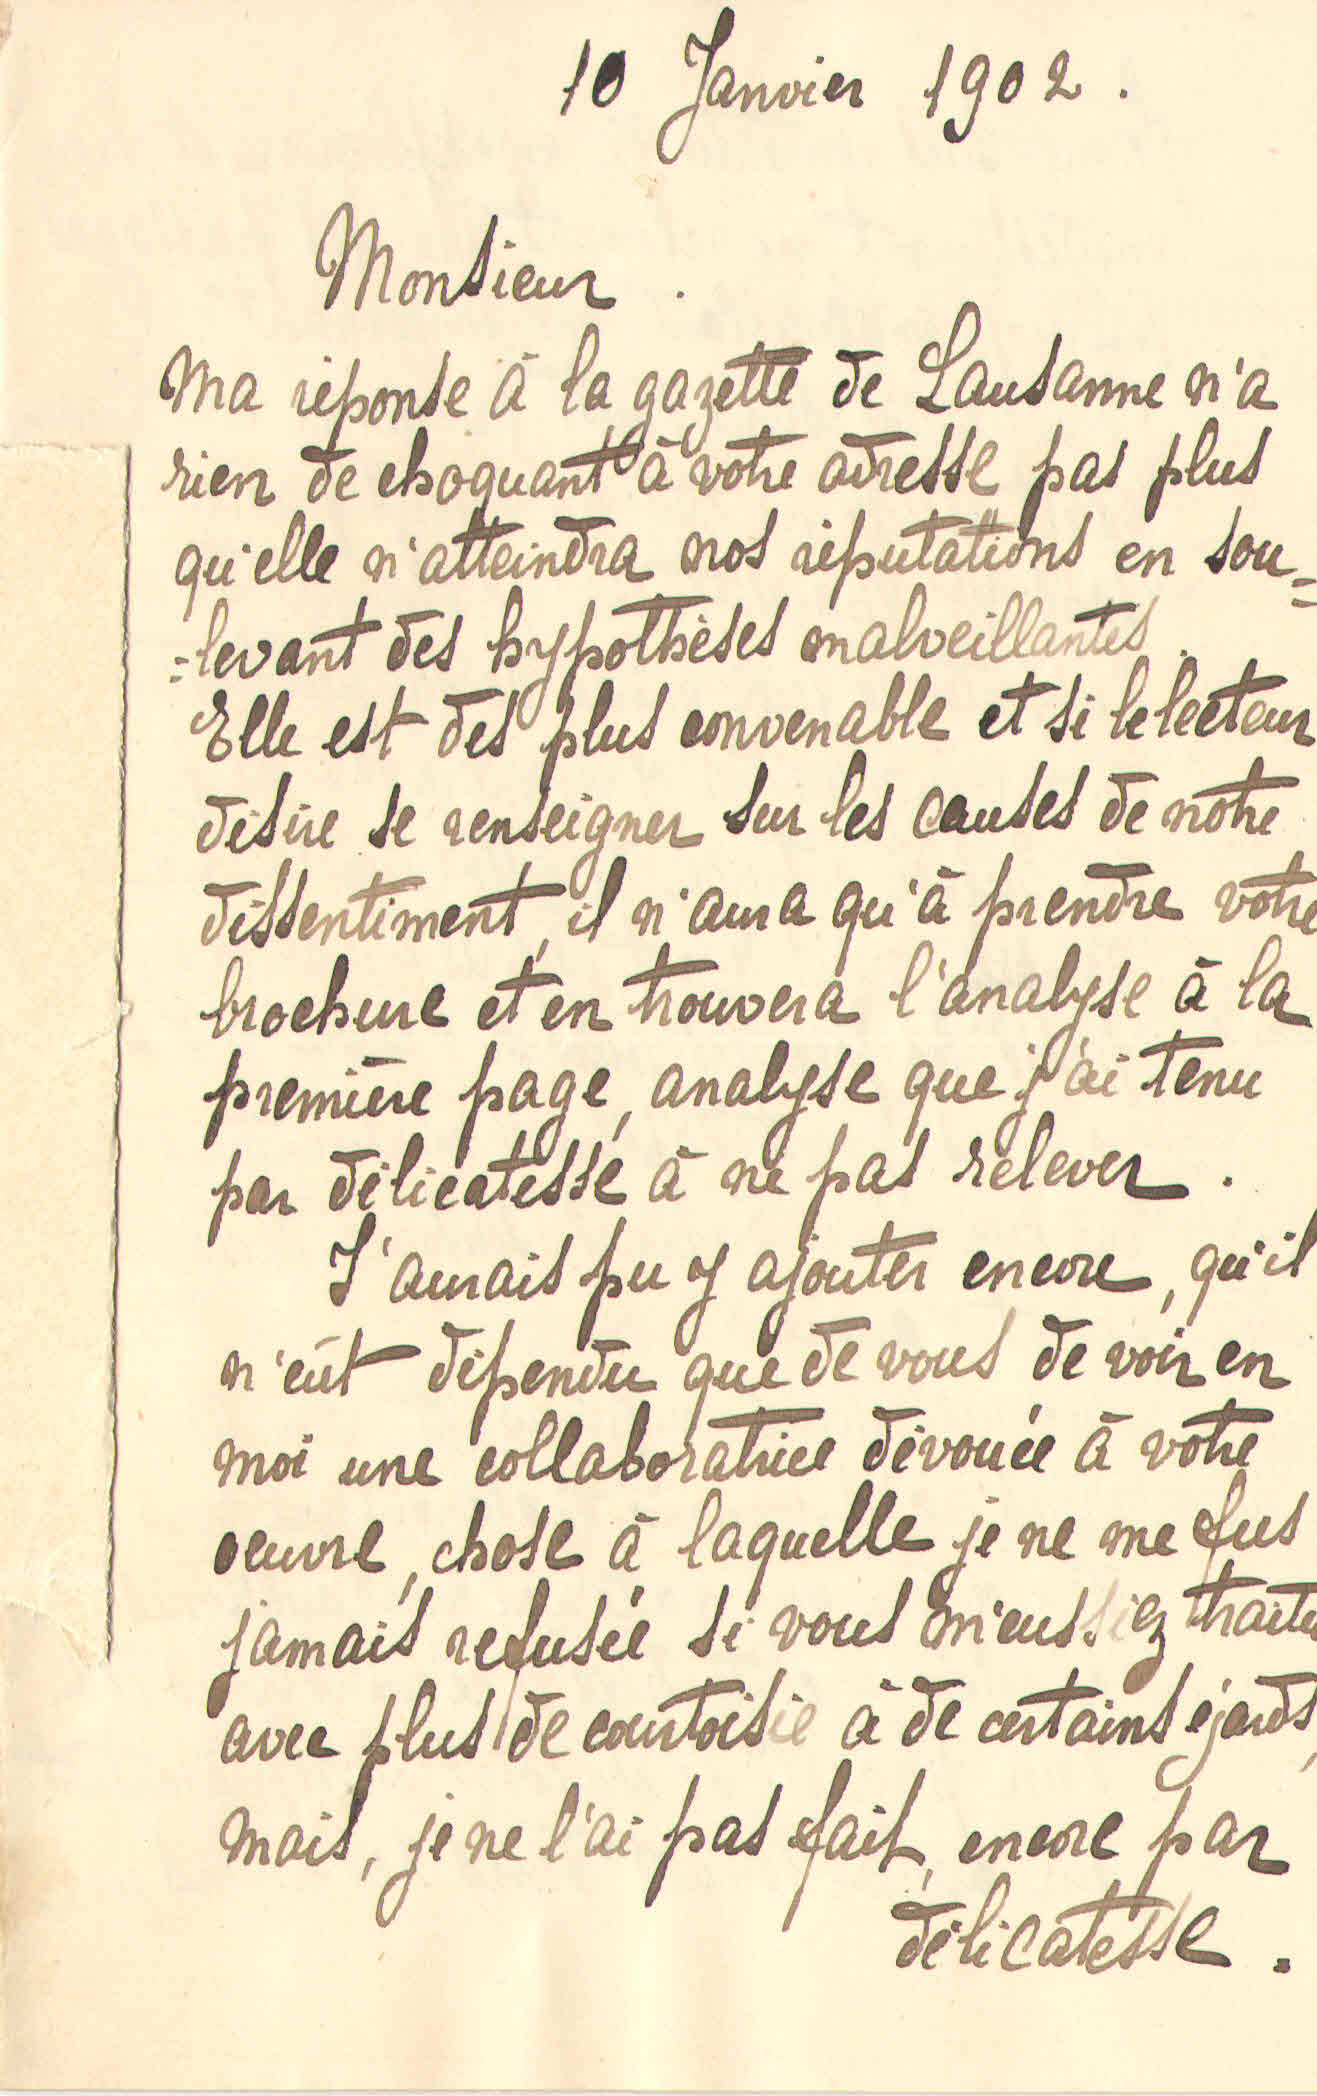 10 Janvier 1902.
Monsieur.
Ma réponse à la gazette de Lausanne n'a
rien de choquant à votre adresse pas plus
qu'elle n'atteindra nos réputations en sou=
=levant des hypothèses malveillantes.
Elle est des plus convenable et si le lecteur
désire se renseigner sur les causes de notre
dissentiment, il n'aura qu'à prendre votre
brochure et en trouvera l'analyse à la
première page, analyse que j'ai tenu
par délicatesse à ne pas relever.
J'aurais pu y ajouter encore, qu'il
n'eût dépendu que de vous de voir en
moi une collaboratrice dévouée à votre
oeuvre, chose à laquelle je ne me fus
jamais refusée si vous m'eussiez traité
avec plus de courtoisie à de certains éjards,
mais, je ne l'ai pas fait, encore par
délicatesse.